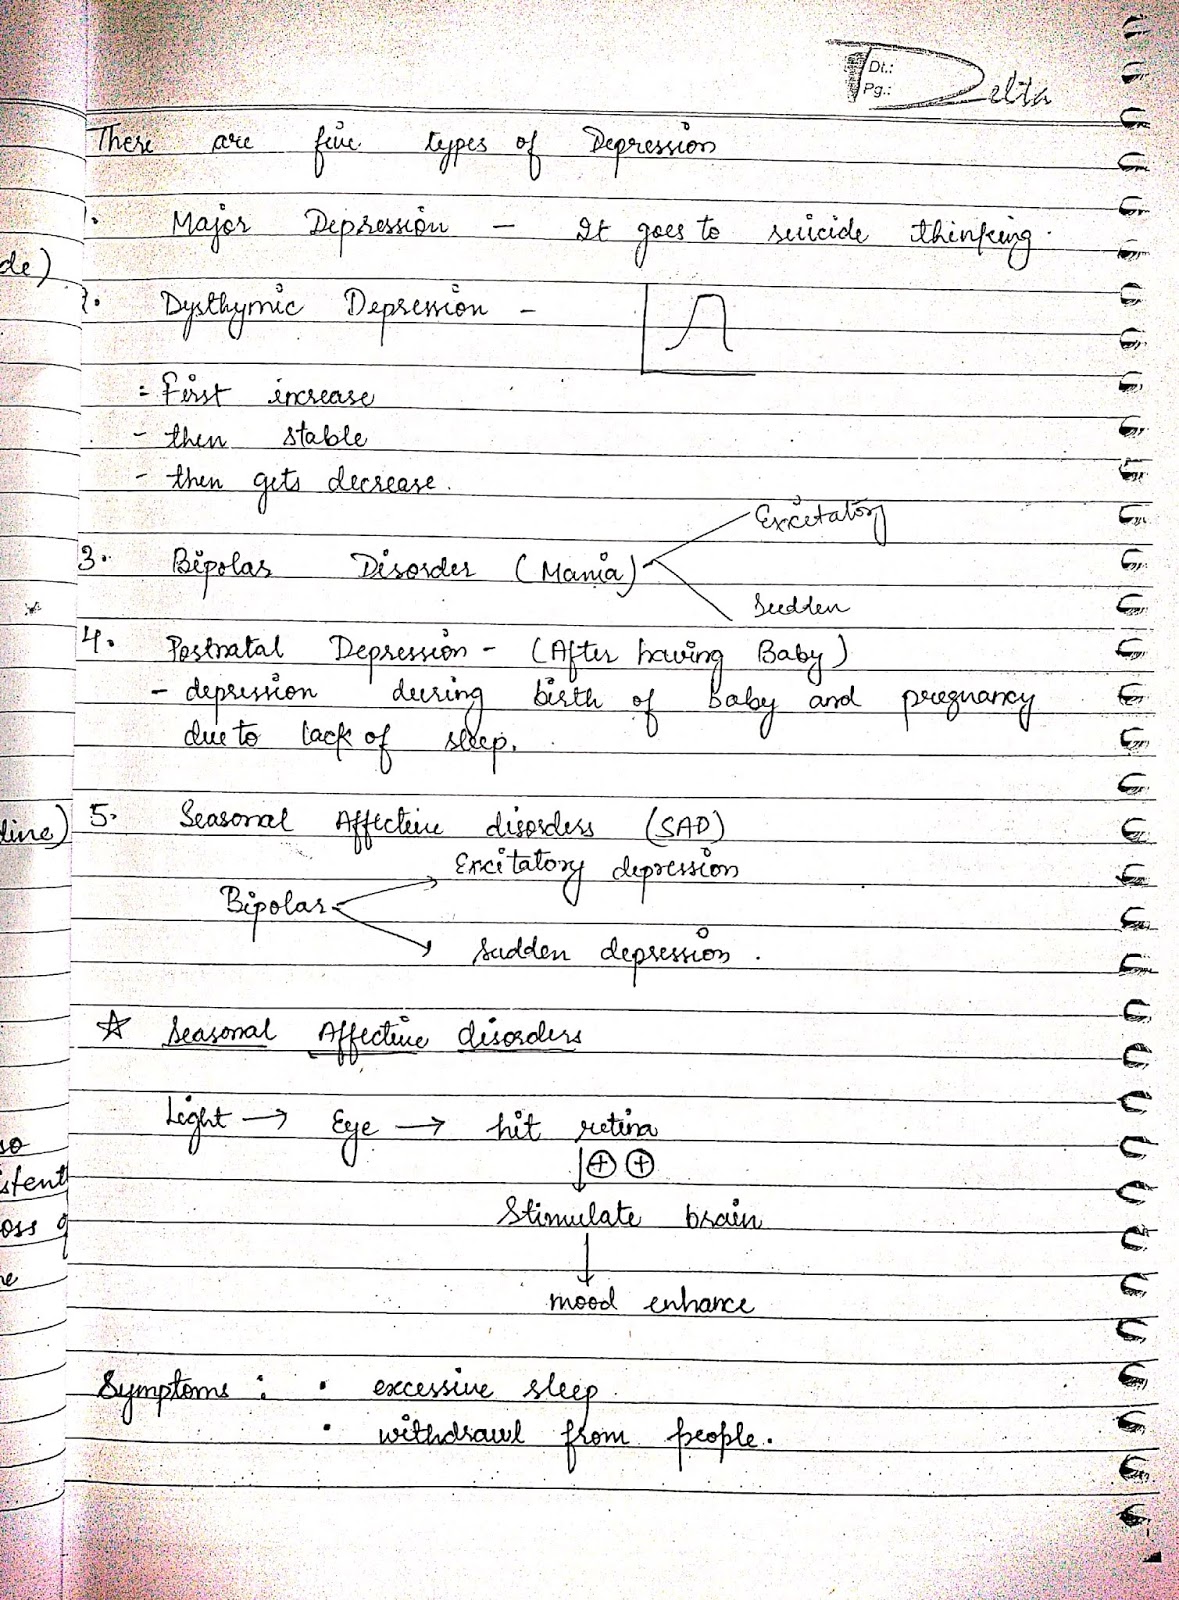 Dt.:
Pg.:
Delta
There are five types of Depression
1. Major Depression - It goes to suicide thinking.
de)
2. Dysthymic Depression -
= First increase
- then stable
- then gets decrease.
Excitatory
3. Bipolar Disorder (Mania)
Sudden
4. Postnatal Depression - (After having Baby)
- depression during birth of baby and pregnancy
due to lack of sleep.
line)
5. Seasonal Affective disorders (SAD)
Excitatory depression
Bipolar
Sudden depression.
☆ Seasonal Affective disorders
Light → Eye → hit retina
↓ ⊕ ⊕
so
istent
Stimulate brain
oss of
↓
mood enhance
Symptoms : • excessive sleep.
• withdrawl from people.